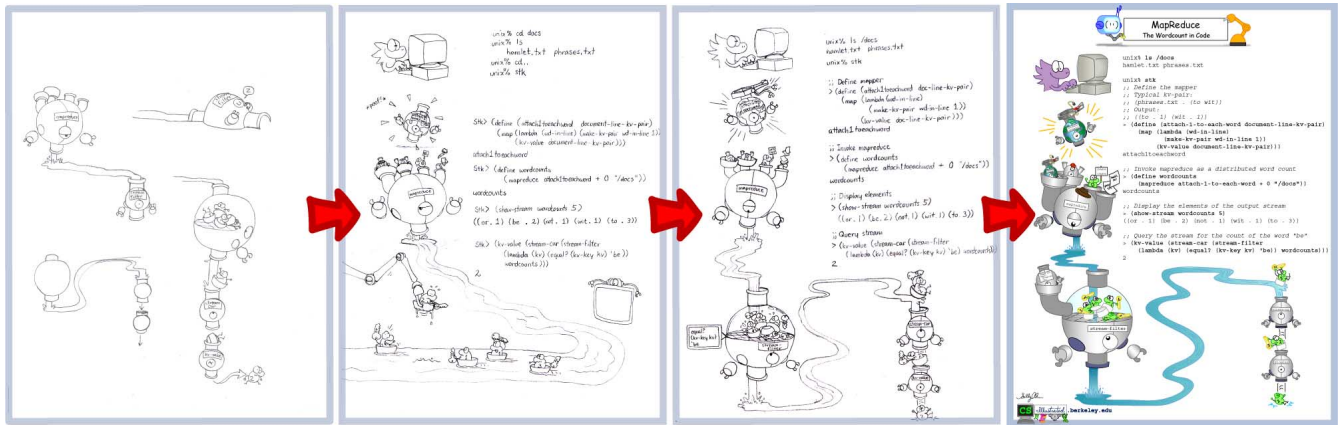 mapreduce
unix% cd docs
unix% ls
hamlet.txt phrases.txt
unix% cd..
unix% stk
mapreduce
Stk> (define (attach1toeachword document-line-kv-pair)
(map (lambda (wd-in-line) (make-kv-pair wd-in-line 1))
(kv-value document-line-kv-pair)))
attach1toeachword
Stk> (define wordcounts
(mapreduce attach1toeachword + 0 "/docs"))
wordcounts
Stk> (show-stream wordcounts 5)
((or. 1) (be . 2) (not. 1) (wit. 1) (to . 3))
Stk> (kv-value (stream-car (stream-filter
(lambda (kv) (equal? (kv-key kv) 'be))
wordcounts)))
2
unix% ls /docs
hamlet.txt phrases.txt
unix% stk
;; Define mapper
> (define (attach1toeachword doc-line-kv-pair)
(map (lambda (wd-in-line)
(make-kv-pair wd-in-line 1))
(kv-value doc-line-kv-pair)))
attach1toeachword
;; Invoke mapreduce
> (define wordcounts
(mapreduce attach1toeachword + 0 "/docs"))
wordcounts
;; Display elements
> (show-stream wordcounts 5)
((or. 1) (be. 2) (not. 1) (wit. 1) (to . 3))
;; Query stream
> (kv-value (stream-car (stream-filter
(lambda (kv) (equal? (kv-key kv) 'be) wordcounts)))
2
mapreduce
stream-filter
stream-car
kv-value
MapReduce
The Wordcount in Code
unix% ls /docs
hamlet.txt phrases.txt
unix% stk
;; Define the mapper
;; Typical kv-pair:
;; (phrases.txt . (to wit))
;; Output:
;; ((to . 1) (wit . 1))
> (define (attach-1-to-each-word document-line-kv-pair)
(map (lambda (wd-in-line)
(make-kv-pair wd-in-line 1))
(kv-value document-line-kv-pair)))
attach1toeachword
;; Invoke mapreduce as a distributed word count
> (define wordcounts
(mapreduce attach-1-to-each-word + 0 "/docs"))
wordcounts
;; Display the elements of the output stream
> (show-stream wordcounts 5)
((or . 1) (be . 2) (not . 1) (wit . 1) (to . 3))
;; Query the stream for the count of the word "be"
> (kv-value (stream-car (stream-filter
(lambda (kv) (equal? (kv-key kv) 'be) wordcounts)))
2
mapreduce
stream-filter
CS illustrated .berkeley.edu